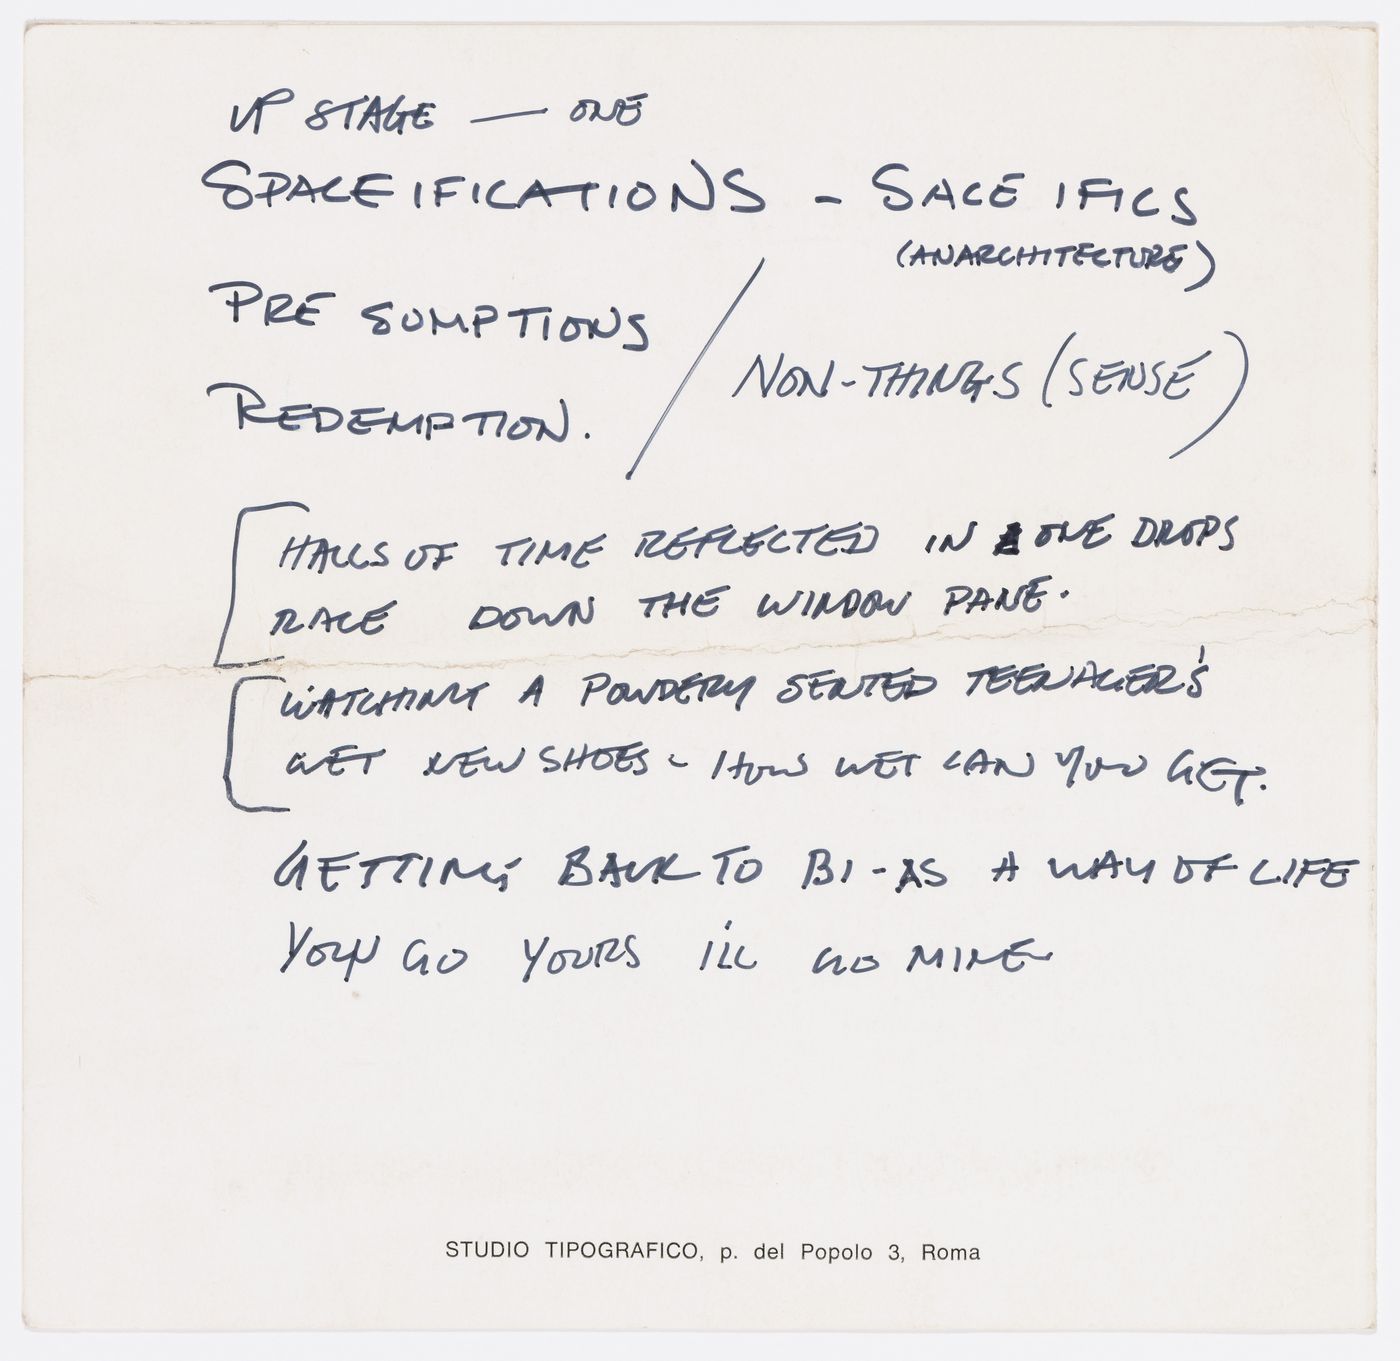 UP STAGE — ONE
SPACEIFICATIONS - SACEIFICS
(ANARCHITECTURE)
PRE SUMPTIONS
NON-THINGS (SENSE)
REDEMPTION.
HALLS OF TIME REFLECTED IN ONE DROPS
RACE DOWN THE WINDOW PANE.
WATCHING A POWDERY SENTED TEENAGER'S
WET NEW SHOES - HOW WET CAN YOU GET.
GETTING BACK TO BI-AS A WAY OF LIFE
YOU GO YOURS I'LL GO MINE
STUDIO TIPOGRAFICO, p. del Popolo 3, Roma